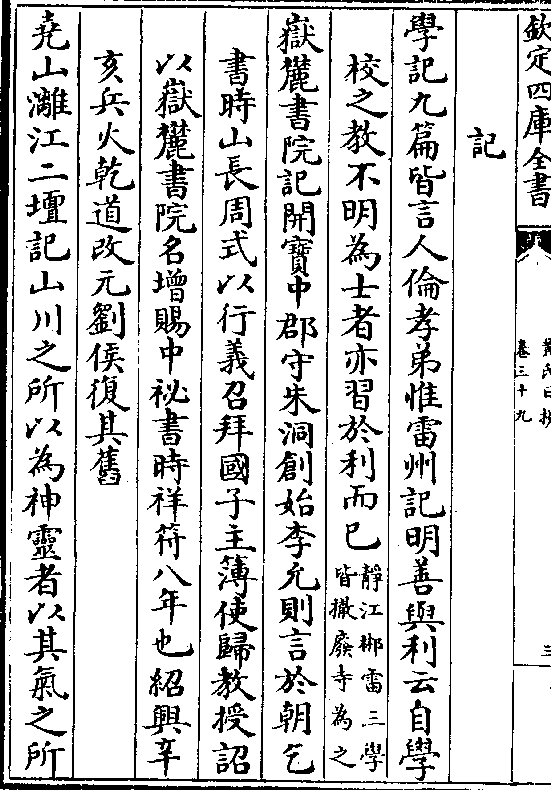 欽定四庫全書
黃氏日抄
卷三十九
三
記
學記九篇皆言人倫孝弟惟雷州記明善與利云自學
校之教不明為士者亦習於利而已靜江郴雷三學皆撤廢寺為之
嶽麓書院記開寶中郡守朱洞創始李允則言於朝乞
書時山長周式以行義召拜國子主簿使歸教授詔
以嶽麓書院名增賜中祕書時祥符八年也紹興辛
亥兵火乾道改元劉侯復其舊
堯山灕江二壇記山川之所以為神靈者以其氣之所